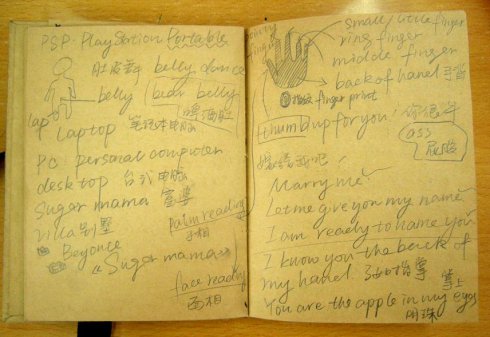 PSP. PlayStation Portable
肚皮舞 belly dance
belly beer belly
啤酒肚
lap
laptop 笔记本电脑
PC. Personal computer
desktop 台式电脑
Sugar mama 富婆
villa 别墅
Beyonce
《Sugar mama》
Palm reading
手相
face reading
面相
small/little finger
ring finger
middle finger
back of hand 手背
finger print
thumb up for you! 你很牛
ass
屁股
嫁给我吧!
Marry me
Let me give you my name
I am ready to have you
I know you the back of
my hand. 了如指掌
掌上
You are the apple in my eyes
明珠